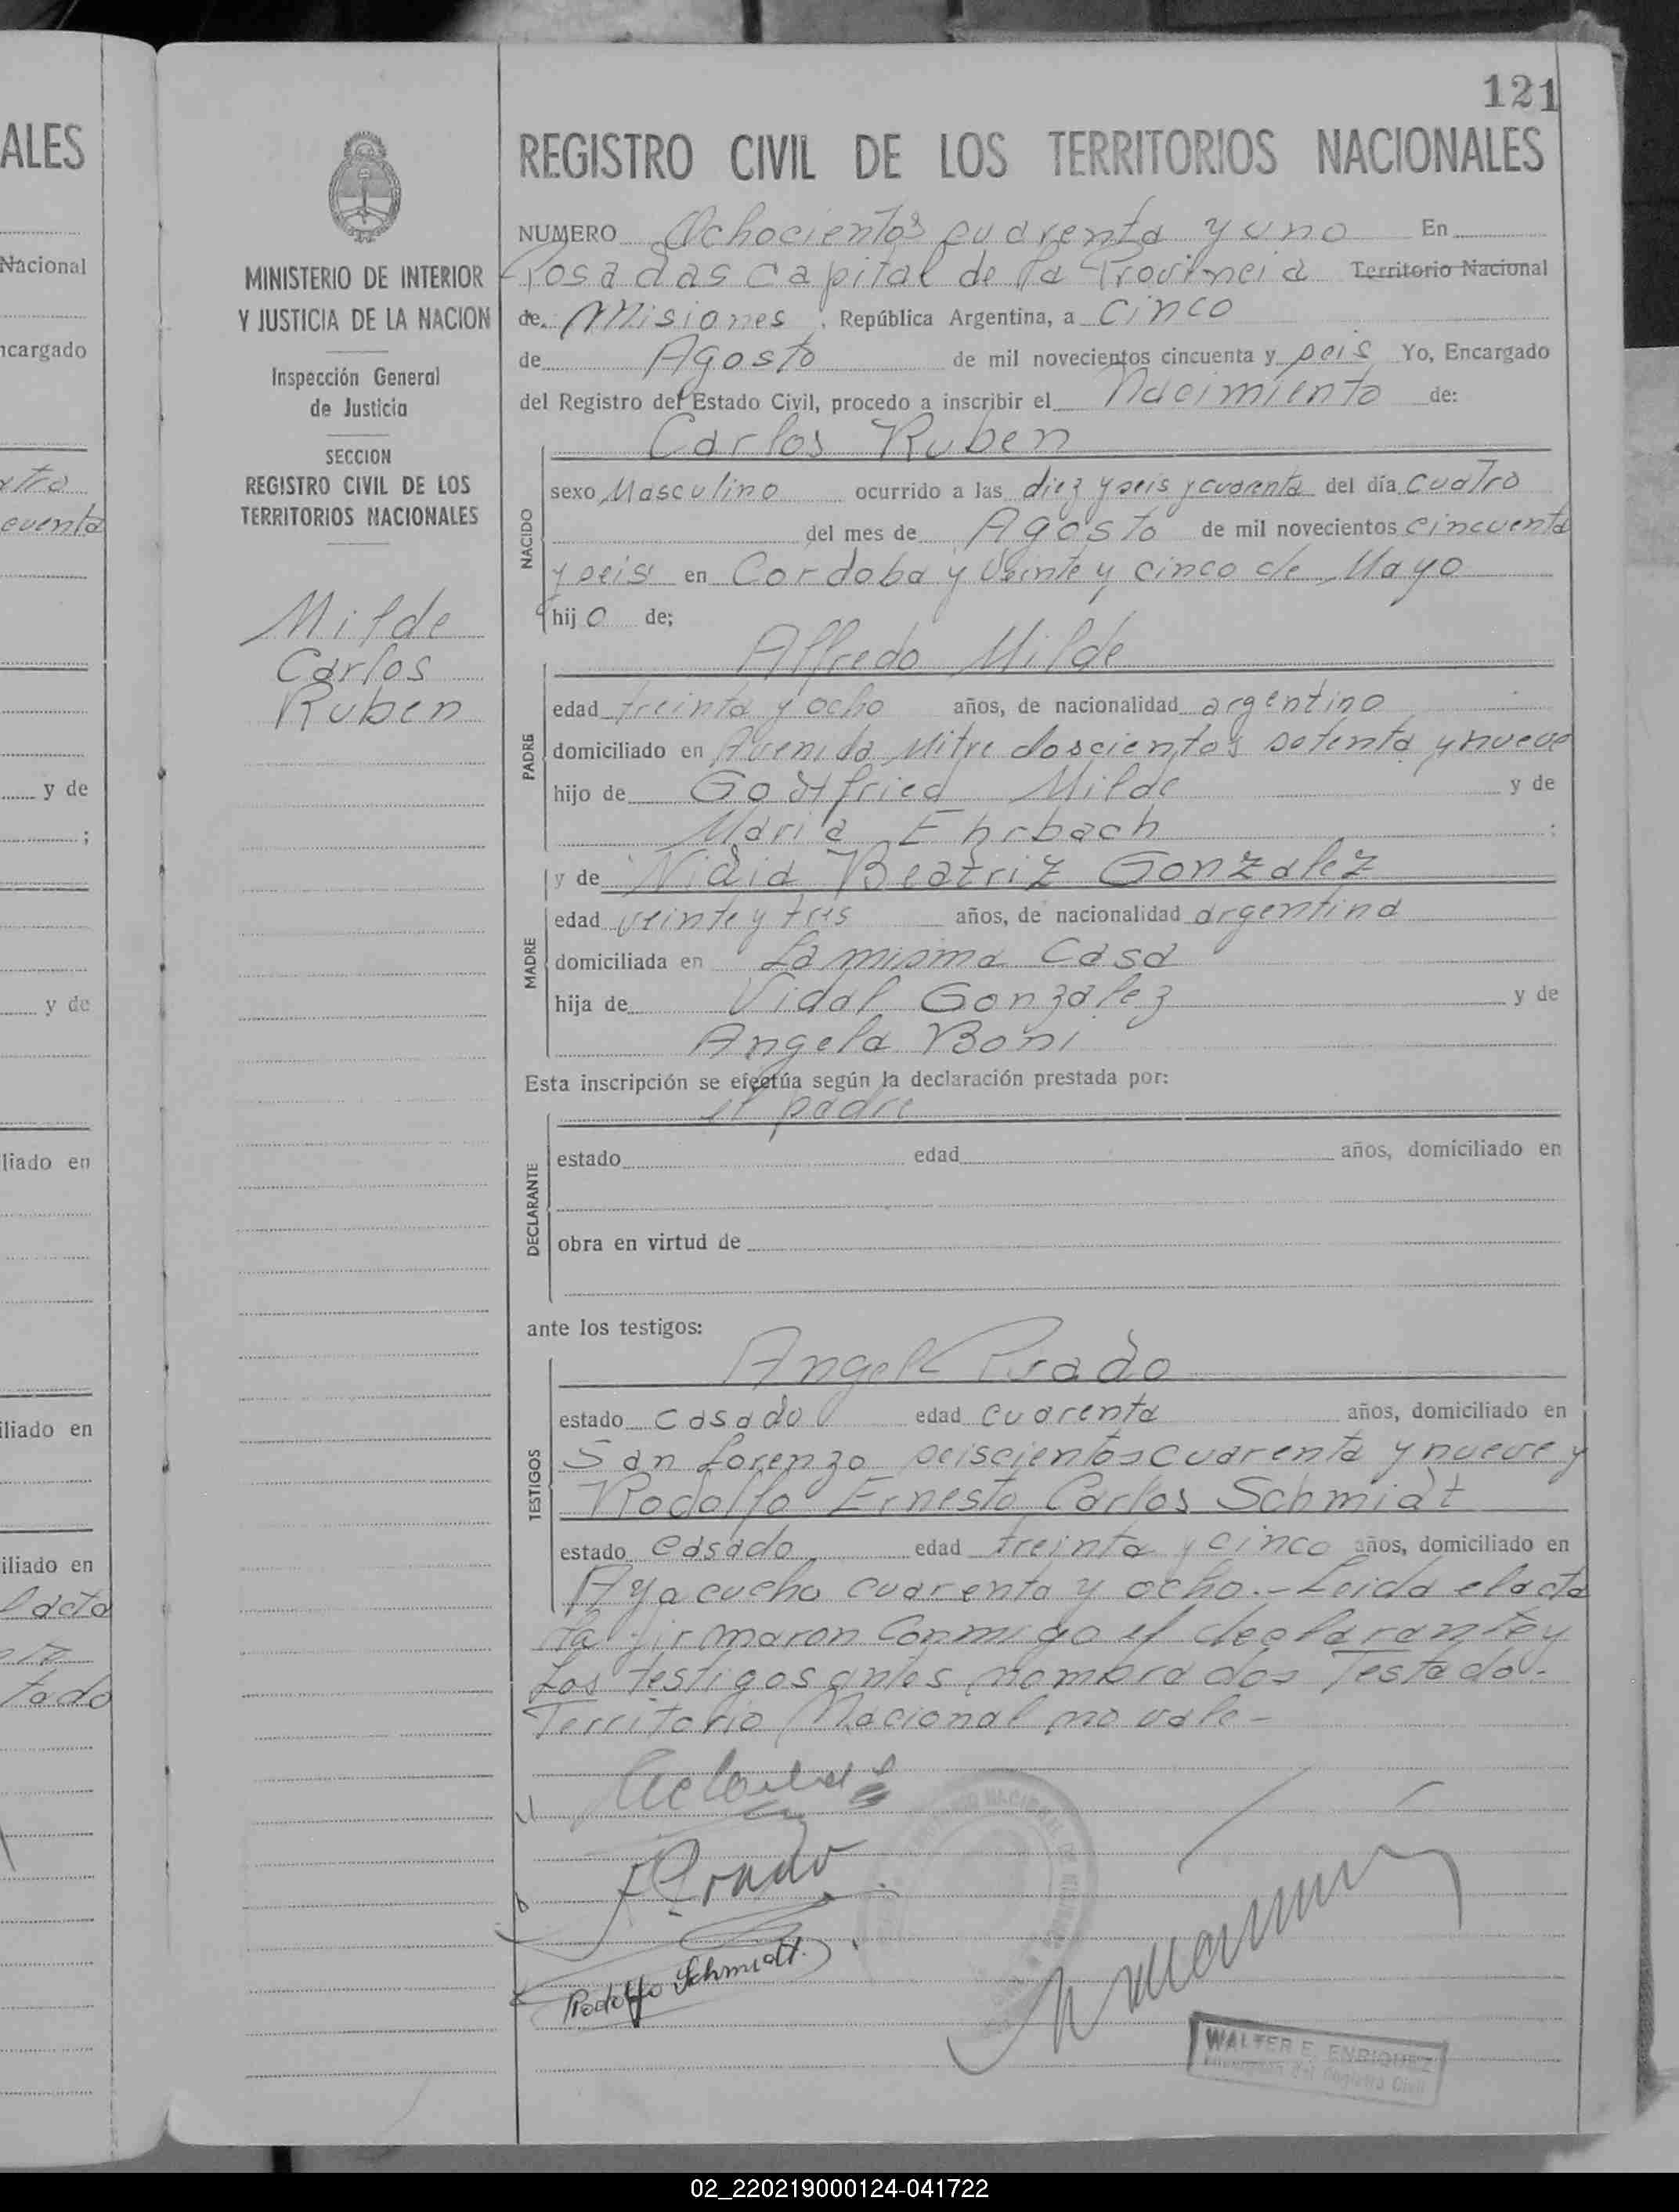 121
ALES
Nacional
ncargado
y de
;
y de
liado en
iliado en
iliado en
tado
MINISTERIO DE INTERIOR
Y JUSTICIA DE LA NACION
Inspección General
de Justicia
SECCION
REGISTRO CIVIL DE LOS
TERRITORIOS NACIONALES
Milde
Carlos
Ruben
REGISTRO CIVIL DE LOS TERRITORIOS NACIONALES
NUMERO Ochocientos cuarenta y uno En
Posadas Capital de la Provincia Territorio Nacional
de Misiones, República Argentina, a cinco
de Agosto de mil novecientos cincuenta y seis Yo, Encargado
del Registro del Estado Civil, procedo a inscribir el Nacimiento de:
Carlos Ruben
NACIDO
sexo Masculino ocurrido a las diez y seis y cuarenta del día cuatro
del mes de Agosto de mil novecientos cincuenta
y seis en Cordoba y Veinte y cinco de Mayo
hijo de;
Alfredo Milde
PADRE
edad treinta y ocho años, de nacionalidad argentino
domiciliado en Avenida Mitre doscientos setenta y nueve
hijo de Gottfried Milde y de
Maria Ehrbach ;
y de Nidia Beatriz Gonzalez
MADRE
edad veinte y tres años, de nacionalidad argentina
domiciliada en La misma Casa
hija de Vidal Gonzalez y de
Angela Boni
Esta inscripción se efectúa según la declaración prestada por:
el padre
DECLARANTE
estado edad años, domiciliado en
obra en virtud de
ante los testigos:
Angel Prado
TESTIGOS
estado casado edad cuarenta años, domiciliado en
San Lorenzo seiscientos cuarenta y nueve y
Rodolfo Ernesto Carlos Schmidt
estado casado edad treinta y cinco años, domiciliado en
Ayacucho cuarenta y ocho.- Leida el acta
la firmaron conmigo el declarante y
los testigos antes nombrados Testado-
Territorio Nacional no vale-
Prado
Rodolfo Schmidt.
WALTER E. ENRIQUEZ
Registro Civil
02_220219000124-041722